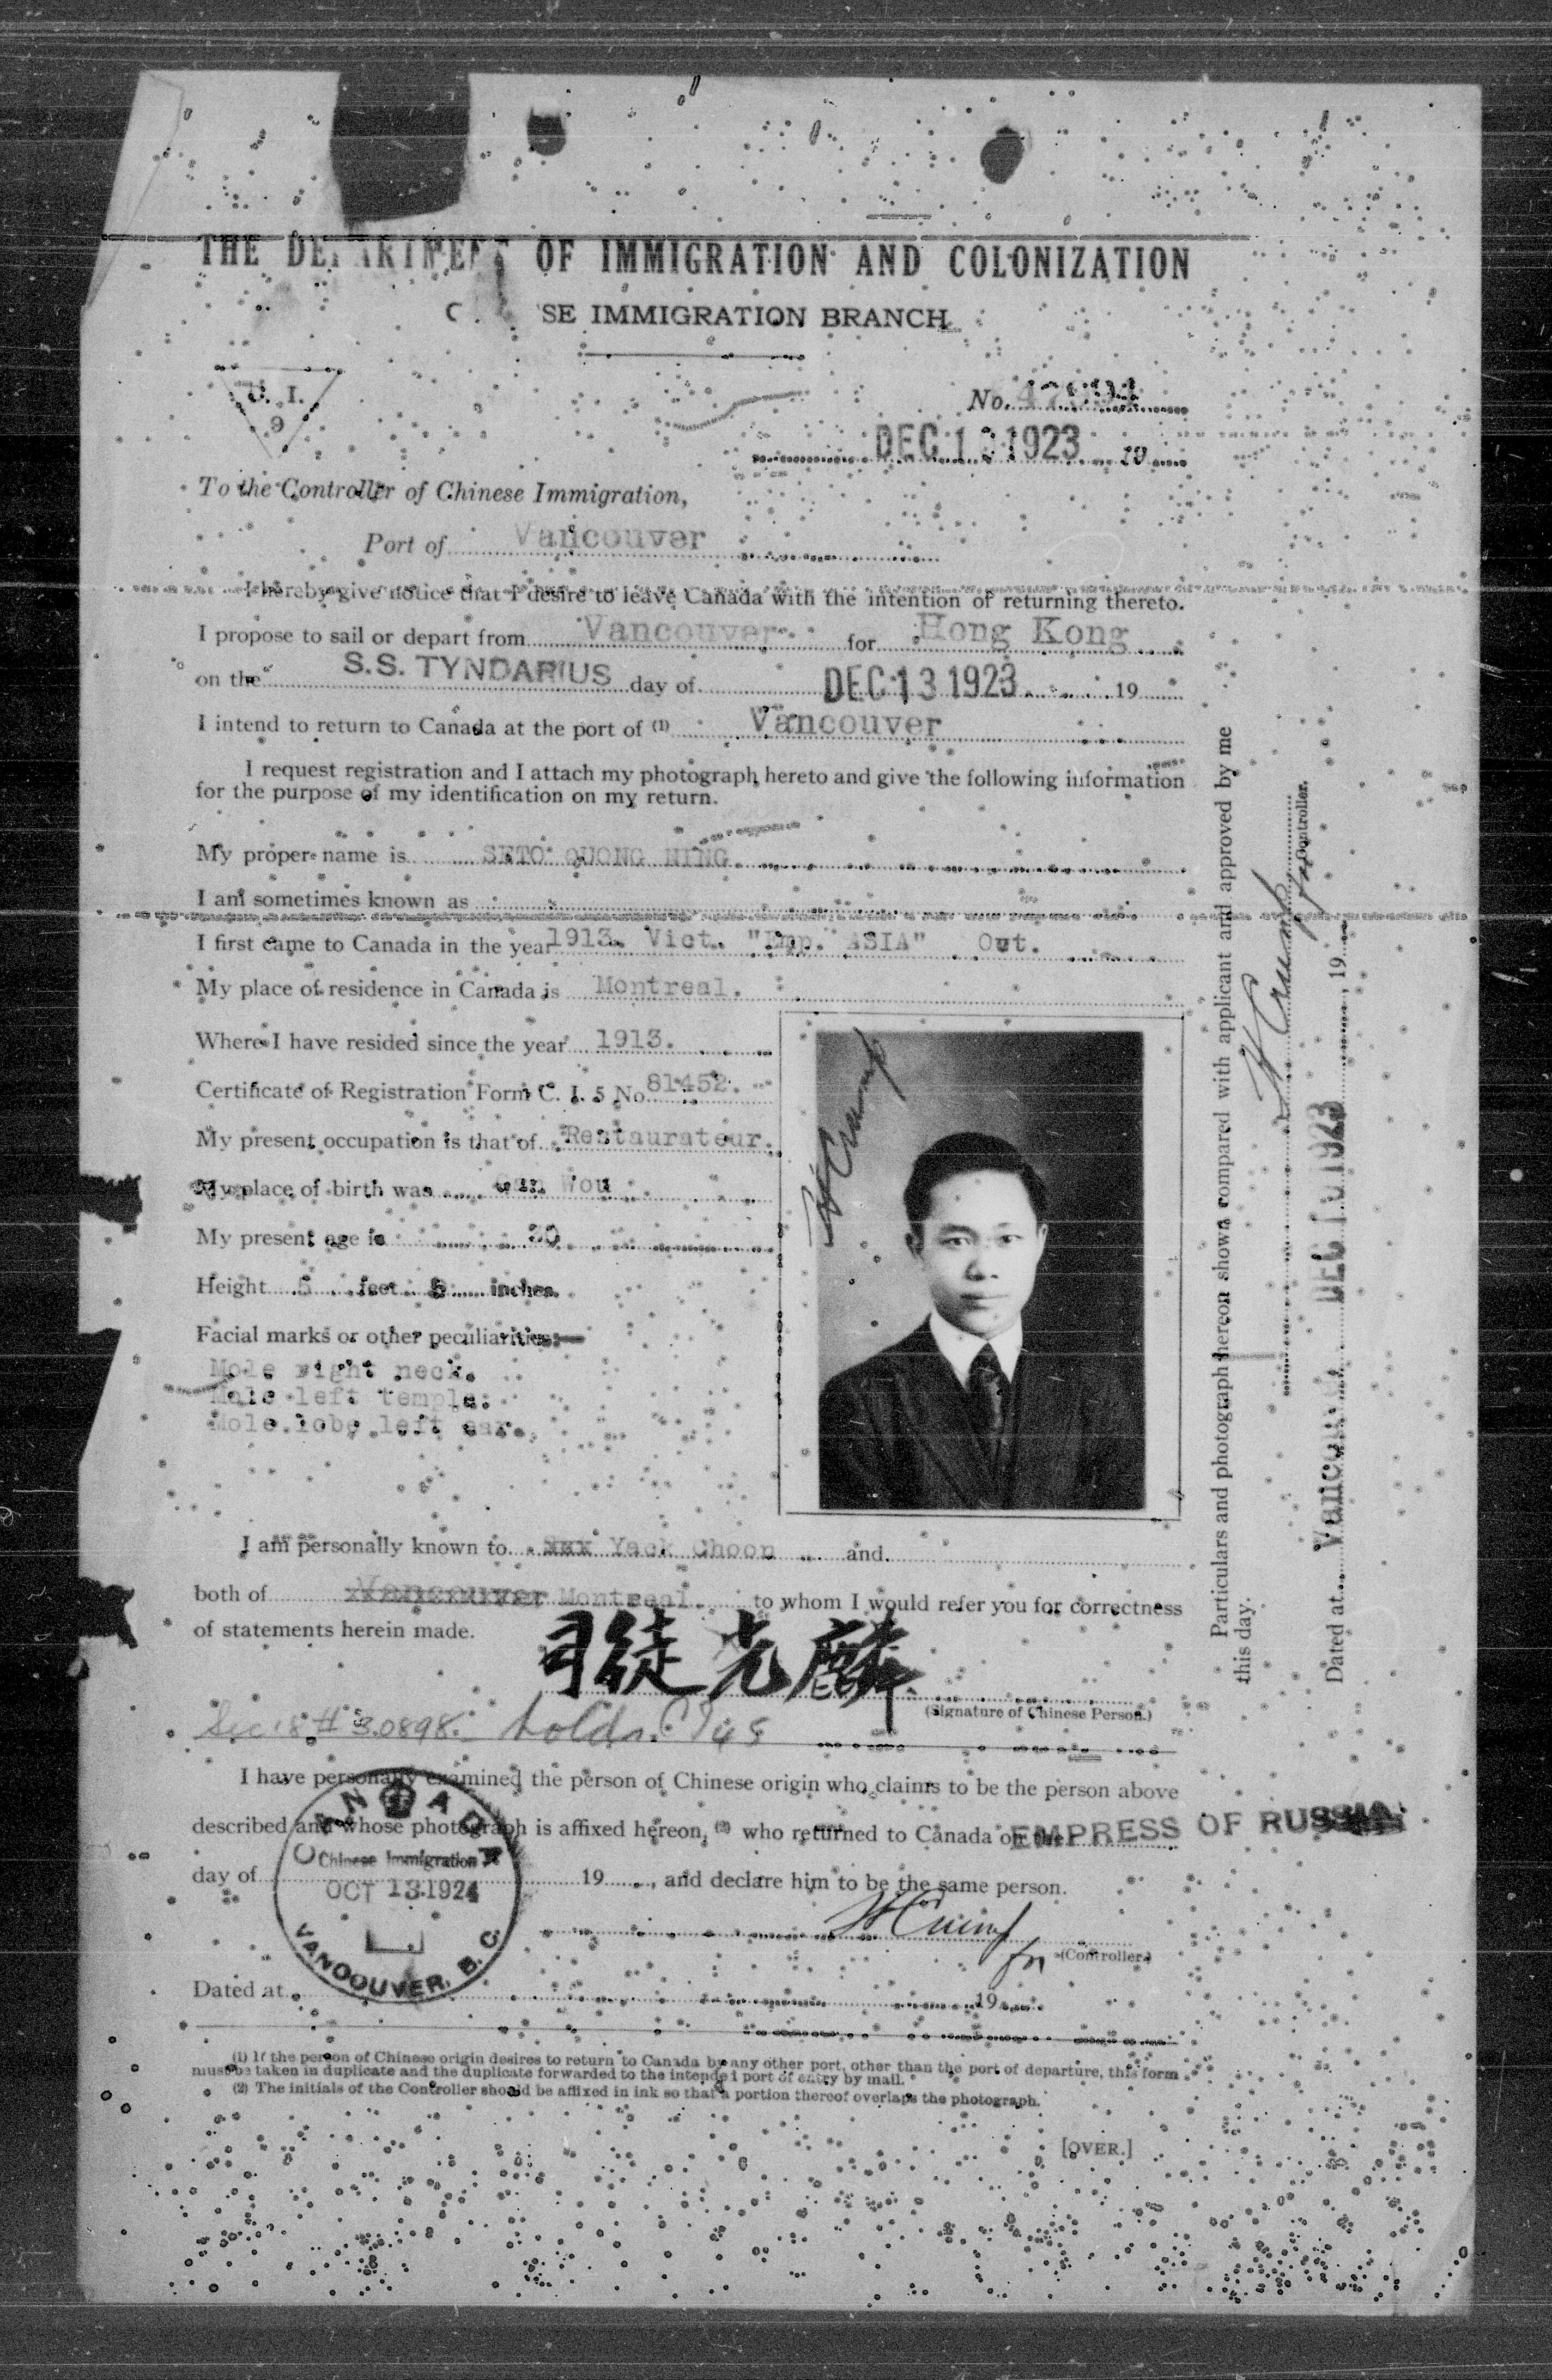 THE DEPARTMENT OF IMMIGRATION AND COLONIZATION
C SE IMMIGRATION BRANCH
C. I.
9
No.
DEC 1 1923 19
To the Controller of Chinese Immigration,
Port of Vancouver
I hereby give notice that I desire to leave Canada with the intention of returning thereto.
I propose to sail or depart from Vancouver for Hong Kong
on the S.S. TYNDARIUS day of DEC 13 1923 19
I intend to return to Canada at the port of (1) Vancouver
I request registration and I attach my photograph hereto and give the following information
for the purpose of my identification on my return.
My proper name is SETO QUONG NING
I am sometimes known as
I first came to Canada in the year 1913. Vict. "Emp. ASIA" Out.
My place of residence in Canada is Montreal.
Where I have resided since the year 1913.
Certificate of Registration Form C. I. 5 No 81452.
My present occupation is that of Restaurateur.
My place of birth was Wou
My present age is 30
Height 5 feet inches.
Facial marks or other peculiarities:—
Mole right neck.
Mole left temple:
Mole lobe left ear.
I am personally known to xxx Yack Choon and
both of Vancouver Montreal. to whom I would refer you for correctness
of statements herein made.
司徒光麟
(Signature of Chinese Person.)
Sec 18 # 30898.
I have personally examined the person of Chinese origin who claims to be the person above
described and whose photograph is affixed hereon, (2) who returned to Canada on the EMPRESS OF RUSSIA
day of 19 , and declare him to be the same person.
CANADA
Chinese Immigration
OCT 13 1924
VANCOUVER, B. C.
H Crump
for (Controller.)
Dated at 19
(1) If the person of Chinese origin desires to return to Canada by any other port, other than the port of departure, this form
must be taken in duplicate and the duplicate forwarded to the intended port of entry by mail.
(2) The initials of the Controller should be affixed in ink so that a portion thereof overlaps the photograph.
[OVER.]
H Crump
Particulars and photograph hereon shown compared with applicant and approved by me
this day.
H Crump
for Controller.
Dated at Vancouver DEC 1 1923 , 19